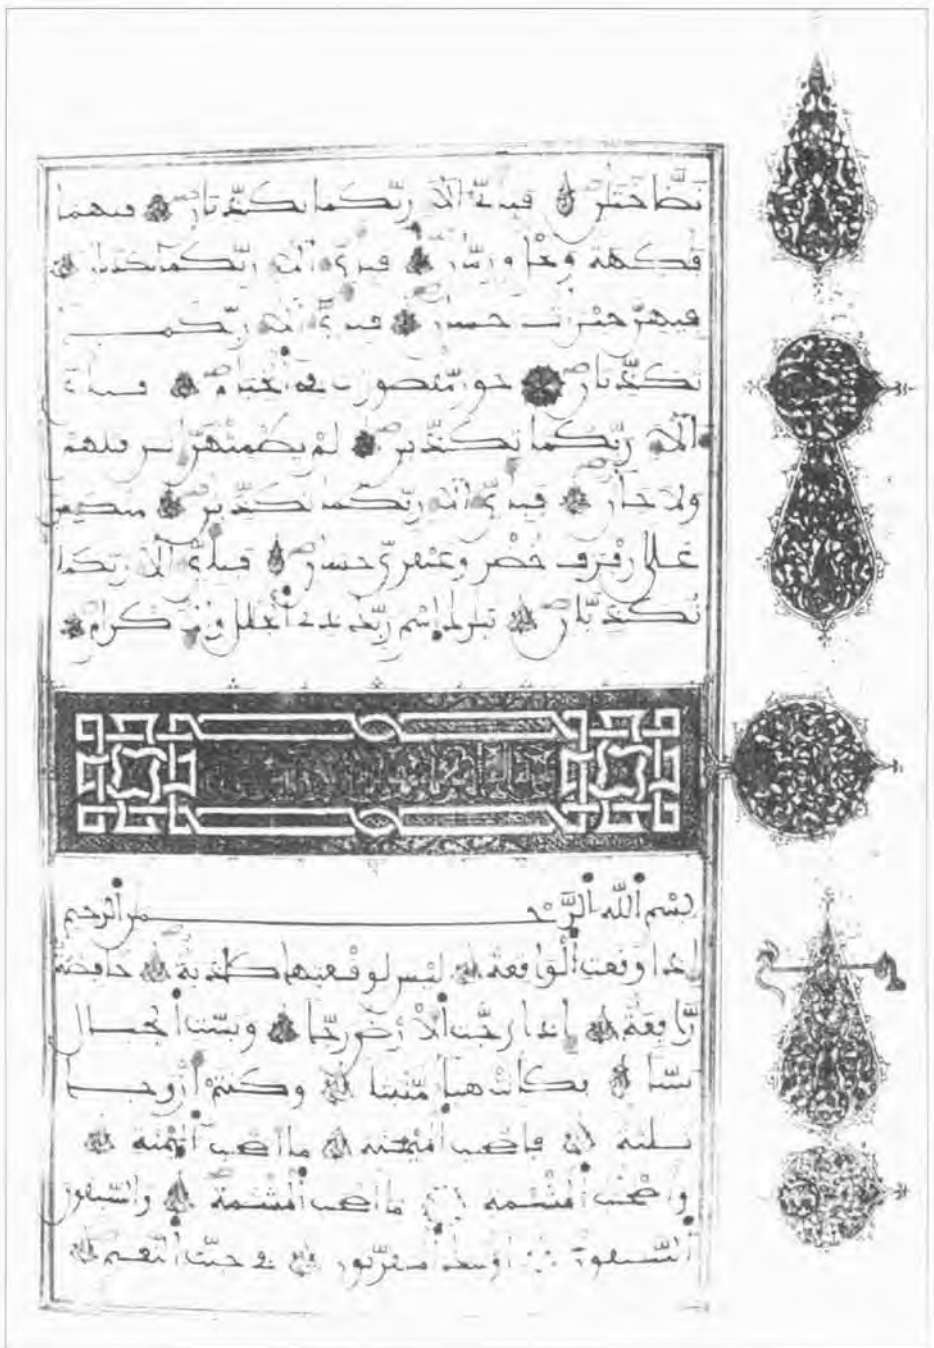 نَضَّاخَتَٰنِ فَبِأَيِّ ءَالَآءِ رَبِّكُمَا تُكَذِّبَانِ فِيهِمَا
فَٰكِهَةٌ وَنَخْلٌ وَرُمَّانٌ فَبِأَيِّ ءَالَآءِ رَبِّكُمَا تُكَذِّبَانِ
فِيهِنَّ خَيْرَٰتٌ حِسَانٌ فَبِأَيِّ ءَالَآءِ رَبِّكُمَا
تُكَذِّبَانِ حُورٌ مَّقْصُورَٰتٌ فِي ٱلْخِيَامِ فَبِأَيِّ
ءَالَآءِ رَبِّكُمَا تُكَذِّبَانِ لَمْ يَطْمِثْهُنَّ إِنسٌ قَبْلَهُمْ
وَلَا جَآنٌّ فَبِأَيِّ ءَالَآءِ رَبِّكُمَا تُكَذِّبَانِ مُتَّكِـِٔينَ
عَلَىٰ رَفْرَفٍ خُضْرٍ وَعَبْقَرِيٍّ حِسَانٍ فَبِأَيِّ ءَالَآءِ رَبِّكُمَا
تُكَذِّبَانِ تَبَٰرَكَ ٱسْمُ رَبِّكَ ذِي ٱلْجَلَٰلِ وَٱلْإِكْرَامِ
بِسْمِ ٱللَّهِ ٱلرَّحْمَٰنِ ٱلرَّحِيمِ
إِذَا وَقَعَتِ ٱلْوَاقِعَةُ لَيْسَ لِوَقْعَتِهَا كَاذِبَةٌ خَافِضَةٌ
رَّافِعَةٌ إِذَا رُجَّتِ ٱلْأَرْضُ رَجًّا وَبُسَّتِ ٱلْجِبَالُ
بَسًّا فَكَانَتْ هَبَآءً مُّنۢبَثًّا وَكُنتُمْ أَزْوَٰجًا
ثَلَٰثَةً فَأَصْحَٰبُ ٱلْمَيْمَنَةِ مَآ أَصْحَٰبُ ٱلْمَيْمَنَةِ
وَأَصْحَٰبُ ٱلْمَشْـَٔمَةِ مَآ أَصْحَٰبُ ٱلْمَشْـَٔمَةِ وَٱلسَّٰبِقُونَ
ٱلسَّٰبِقُونَ أُو۟لَٰٓئِكَ ٱلْمُقَرَّبُونَ فِي جَنَّٰتِ ٱلنَّعِيمِ